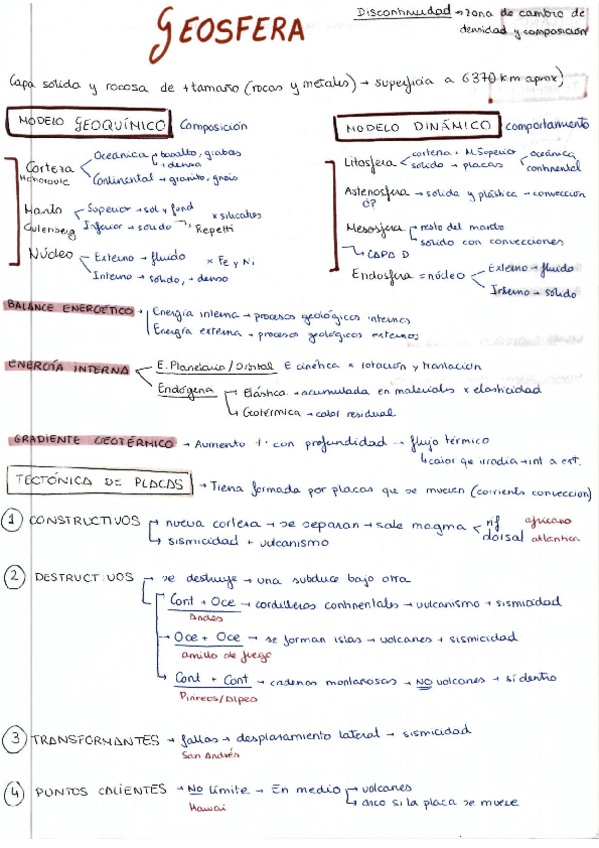 GEOSFERA
Discontinuidad → zona de cambio de
densidad y composición
Capa solida y rocosa de + tamaño (rocas y metales) → superficia a 6370 km aprox)
MODELO GEOQUÍMICO Composición
Corteza
Oceánica → basalto, grabos
→ + densa
Continental → granito, gneis
Mohorovic
Manto
Superior → sol y fund
Inferior → solido
x silicatos
Gutenberg
Repetti
Núcleo
Externo → fluido
Interno → sólido, + denso
x Fe y Ni
MODELO DINÁMICO comportamiento
Litosfera
corteza + M.Superior
solido → placas
oceánica
continental
Astenosfera → solida y plástica → convección
Mesosfera
resto del manto
solido con convecciones
CAPA D
Endosfera = núcleo
Externo → fluido
Interno → sólido
BALANCE ENERGÉTICO
Energía interna → procesos geológicos internos
Energía externa → procesos geológicos externos
ENERGÍA INTERNA
E. Planetaria / Orbital E cinética x rotación y translación
Endógena
Elástica → acumulada en materiales x elasticidad
Geotérmica → calor residual
GRADIENTE GEOTÉRMICO → Aumento t. con profundidad → flujo térmico
calor que irradia → int a ext.
TECTÓNICA DE PLACAS → Tierra formada por placas que se mueven (corriente convección)
1 CONSTRUCTIVOS
nueva corteza → se separan → sale magma
rif africano
dorsal atlántica
sismicidad + vulcanismo
2 DESTRUCTIVOS
se destruye → una subduce bajo otra
Cont + Oce → cordilleras continentales → vulcanismo + sismicidad
Andes
Oce + Oce → se forman islas → volcanes + sismicidad
anillo de fuego
Cont + Cont → cadenas montañosas → NO volcanes → si dentro
Pirineos/Alpes
3 TRANSFORMANTES → fallas → desplazamiento lateral → sismicidad
San Andrés
4 PUNTOS CALIENTES → NO límite → En medio
volcanes
arco si la placa se mueve
Hawai